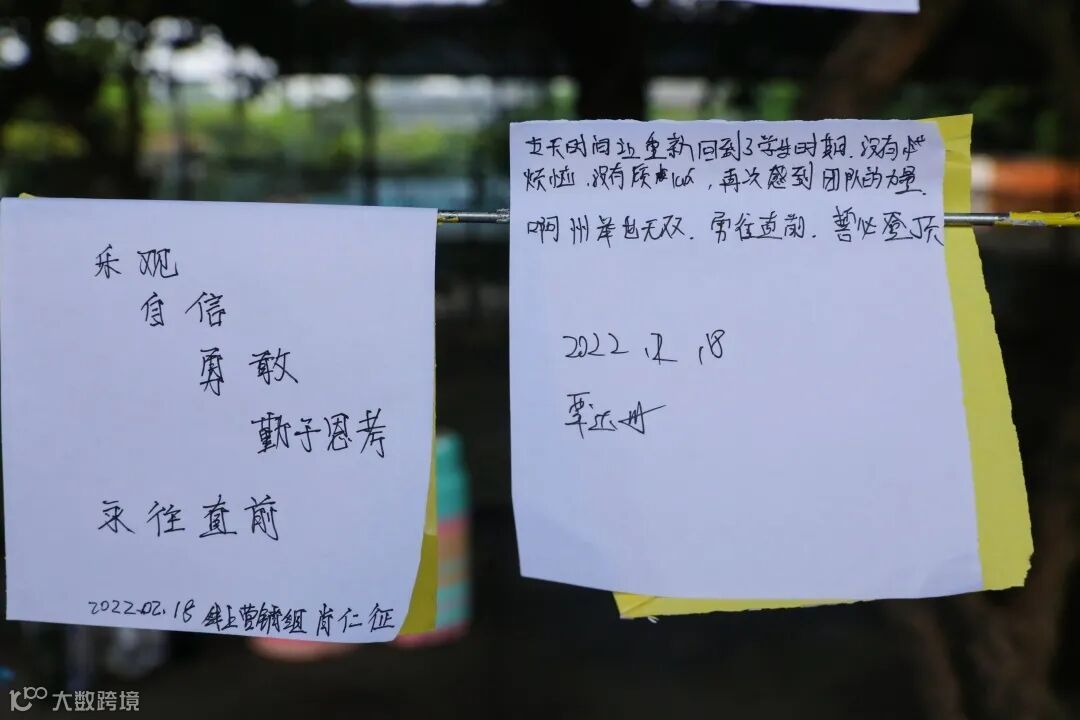 乐观
自信
勇敢
勤于思考
永往直前
2022.02.18 线上营销组 肖仁征
天时间让重新回到了学生时期.没有
烦恼.没有烦,再次感到团队的力量.
啊州举世无双.勇往直前.誓必登顶
2022.2.18
覃
大数跨境